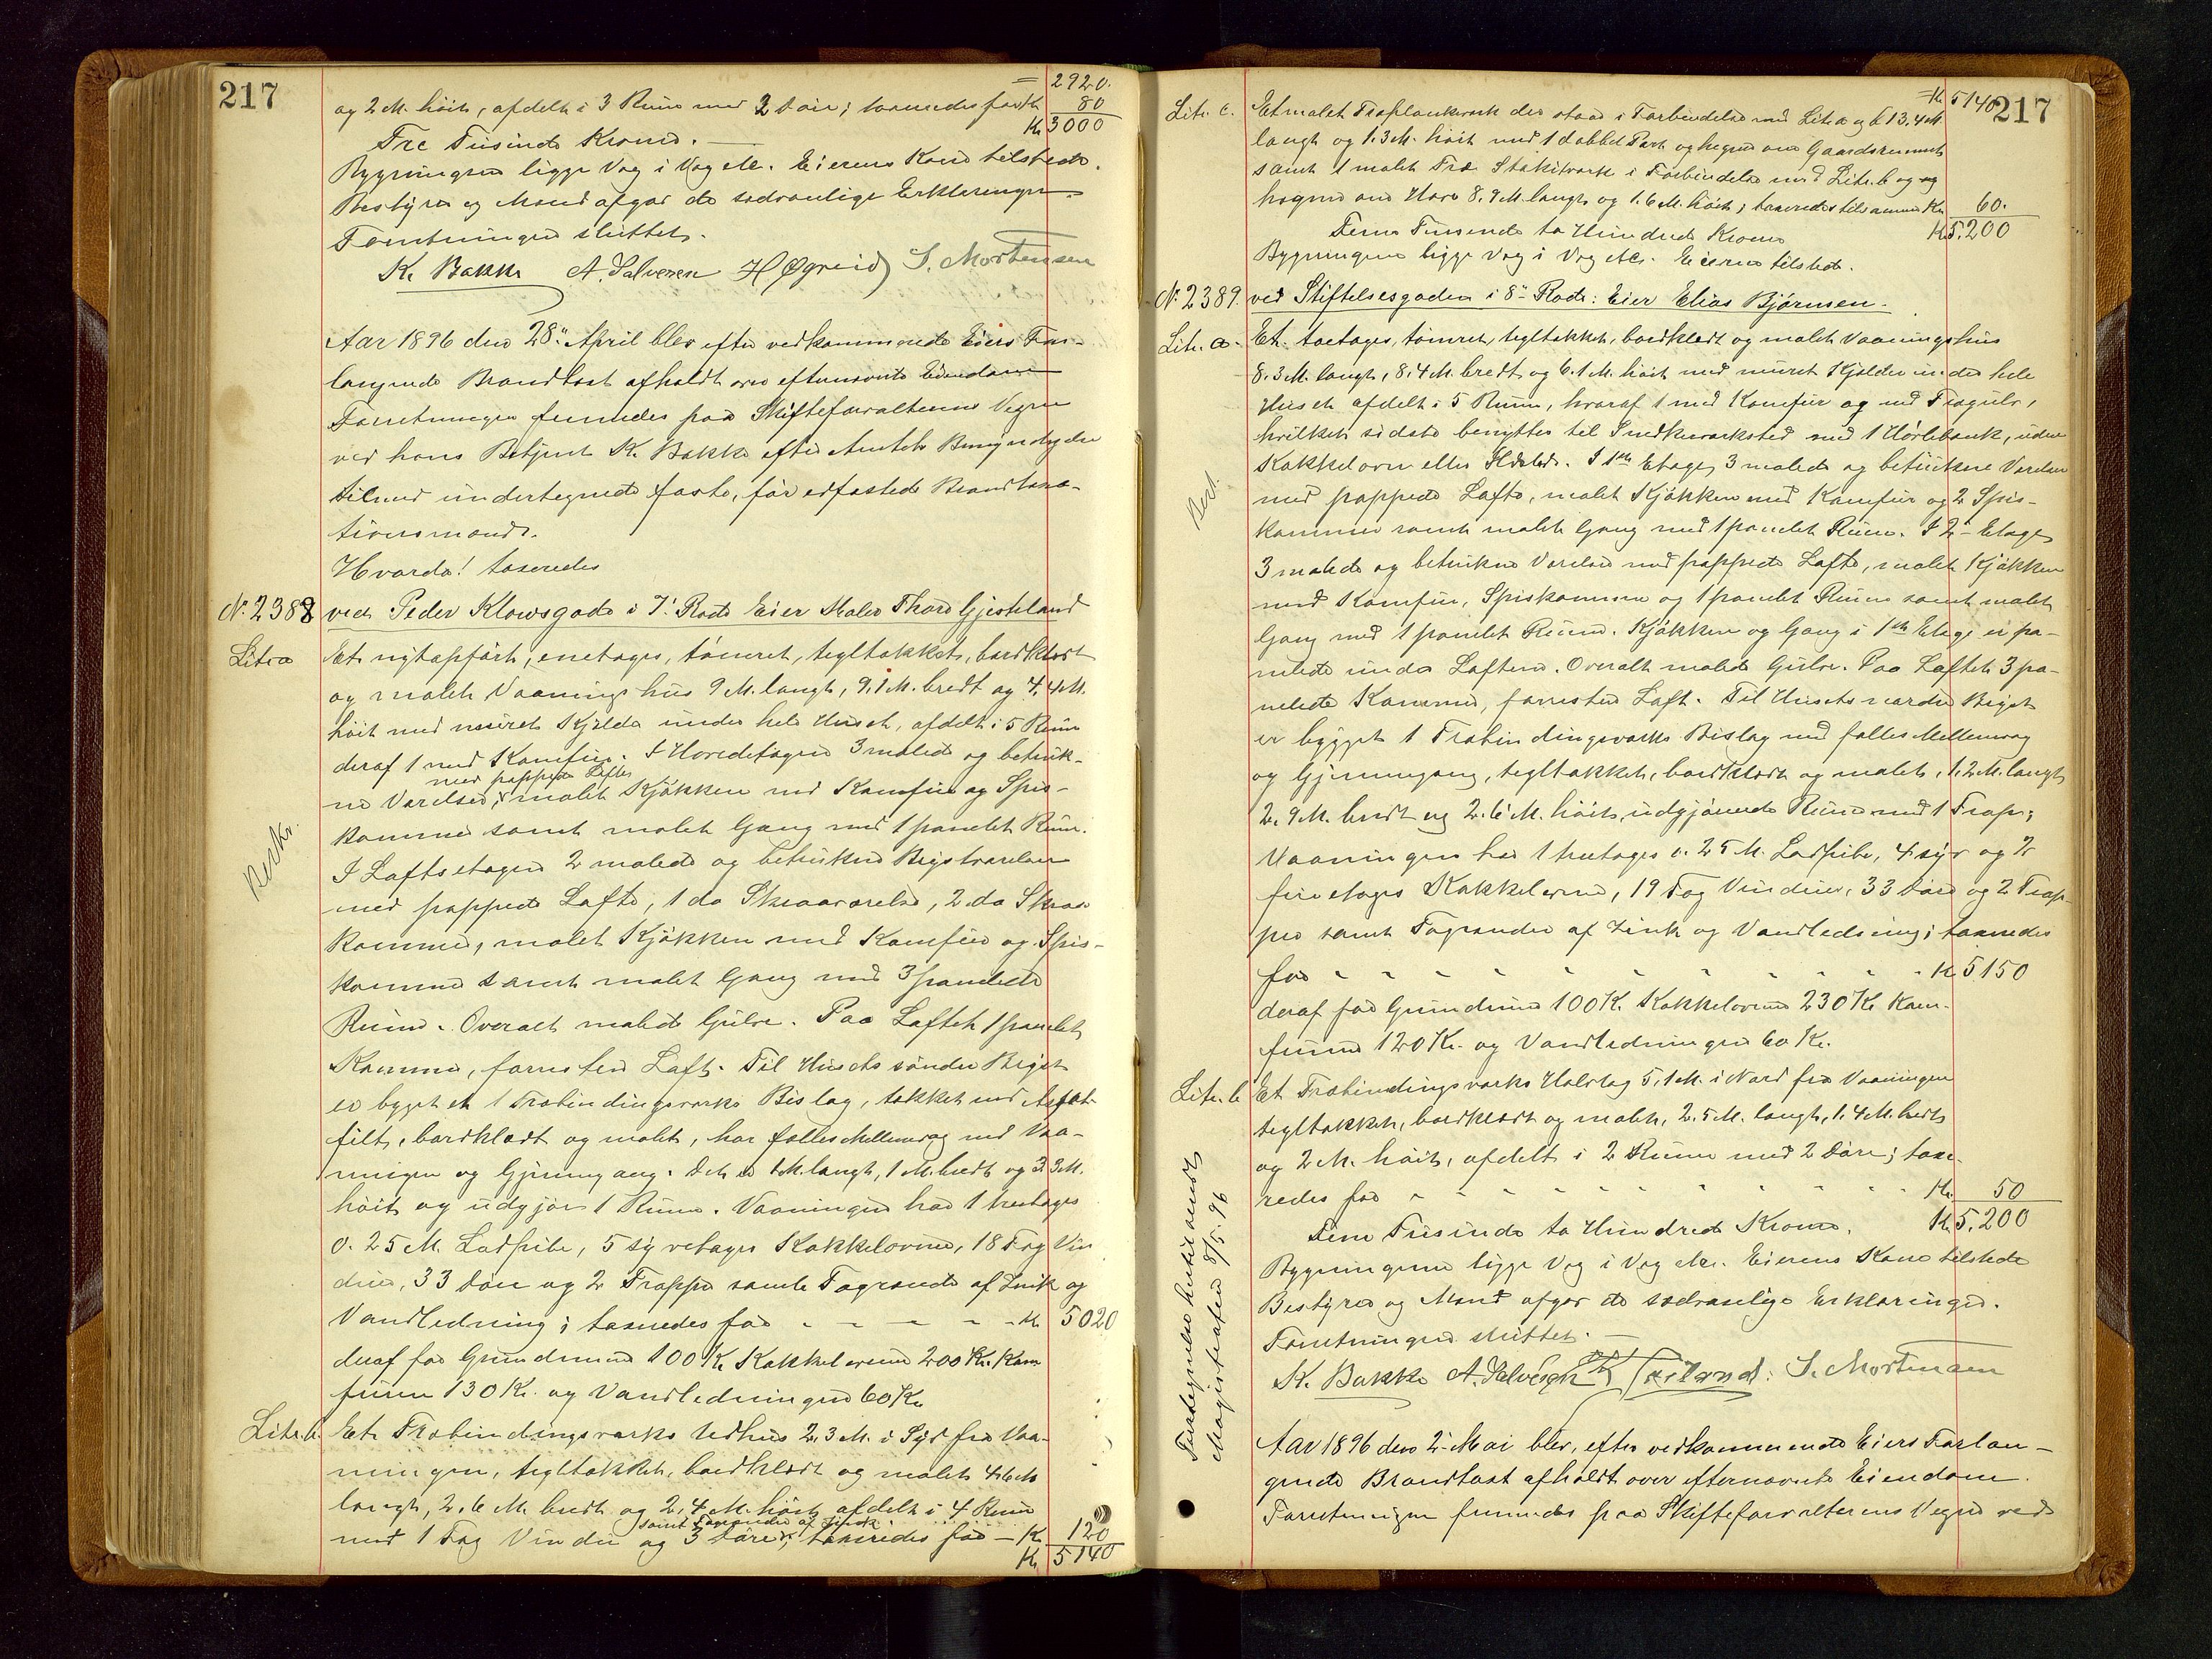 217
= 2920.
og 2 M. höit, afdelt i 3 Rum med 2 Döre; taxeredes for Kr. 80
Tre Tusinde Kroner. — Kr 3000
Bygningen ligge Væg i Væg etc. Eierens Kone tilstede.
Bestyrer og Mænd afgav de sædvanlige Erklæringer.
Forretningen sluttet.
K. Bakke A. Salvesen H Øgreid S. Mortensen
Aar 1896 den 28. April blev efter vedkommende Eiers For-
langende Brandtaxt afholdt over efternævnte Eiendom
Forretningen fremmedes paa Skifteforvalterens Vegne
ved hans Betjent K. Bakke efter Amtets Bemyndigelse
tilmed undertegnede faste, før edfæstede Brandtaxa-
tionsmænd.
Hvorda! taxeredes
No. 2388 ved Peder Klowsgade i 7. Rode Eier Maler Thore Gjesteland
Litr a Et nyt opført, enetages, tömret, tegltækket, bordklædt
og malet Vaaningshus 9 M. langt, 9,1 M. bredt og 4,4 M.
höit med muret Kjelder under hele Huset, afdelt i 5 Rum
deraf 1 med Komfur. I Hovedetagen 3 malede og betruk-
med pappede Lofter
ne Værelser, malet Kjökken med Komfur og Spis-
kammer samt malet Gang med 1 panelet Rum.
I Loftsetagen 2 malede og betrukne Kvistværelser
med pappede Lofte, 1 do Skraaværelse, 2 do Skraa
kammer, malet Kjökken med Komfur og Spis-
kammer samt malet Gang med 3 panelede
Rum. Overalt malede Gulve. Paa Loftet 1 panelet
Kammer, forresten Loft. Til Husets söndre Kvist
er bygget et 1 Træbindingsværks Bislag, tækket med Asfalt-
filt, bordklædt og malet, har fælles Mellemvæg med Vaa-
ningen og Gjennemgang. Det er 1 M. langt, 1 M. bredt og 3,3 M.
höit og udgjör 1 Rum. Vaaningen har 1 treetages
0.25 M. Ladpibe, 5 syvetages Kakkelovne, 18 Fag Vin
duer, 33 Döre og 2 Trapper samt Tagrender af Zink og
Vandledning; taxeredes for - - - - - Kr 5020
deraf for Grundmur 100 Kr. Kakkelovne 200 Kr. Kom
furene 130 Kr. og Vandledningen 60 Kr.
Litr. b. Et Træbindingsværks Udhus 2,3 M. i Syd fra Vaa-
ningen, tegltækket, bordklædt og malet 4,6 M
langt, 2,6 M. bredt og 2,4 M. höit, afdelt i 4 Rum
samt Tagrender af Zink
med 1 Fag Vindu og 3 Döre; taxeredes for - Kr. 120
Kr. 5140
217
Kr 5140
Litr. c. Et malet Træplankeværk der staar i Forbindelse med Litr. a og b 13,4 M
langt og 1.3 M. höit med 1 dobbel Port og hegner om Gaardsrummet
samt 1 malet Træ Stakitværk i Forbindelse med Litr. b og
hegner om Have 8.9 M. langt og 1.6 M. höit; taxeredes tilsammen Kr 60.
Fem Tusende to Hundrede Kroner Kr 5.200
Bygningerne ligge Væg i Væg etc. Eieren tilstede.
No. 2389. ved Stiftelsesgaden i 8- Rode: Eier Elias Björnsen.
Litr. a. Et toetages, tömret, tegltækket, bordklædt og malet Vaaningshus
8.3 M. langt, 8.4 M. bredt og 6.1 M. höit med muret Kjelder under hele
Huset afdelt i 5 Rum, hvoraf 1 med Komfur og med Trægulv,
hvilket sidste benyttes til Snedkerværksted med 1 Hövlebænk, uden
Kakkelovn eller Ildsted. I 1ste Etage 3 malede og betrukne Værelser
med pappede Lofte, malet Kjökken med Komfur og 2 Spis-
kammer samt malet Gang med 1 panelet Rum. I 2- Etage
3 malede og betrukne Værelser med pappede Lofte, malet Kjökken
med Komfur, Spiskammer og 1 panelet Rum samt malet
Gang med 1 panelet Rum. Kjökken og Gang i 1ste Etage er pa-
nelede under Loftene. Overalt malede Gulve. Paa Loftet 3 pa-
nelede Kammer, forresten Loft. Til Husets nordre Kvist
er bygget 1 Træbindingsværks Bislag med fælles Mellemvæg
og Gjennemgang, tegltækket, bordklædt og malet, 1,2 M. langt
2.9 M. bredt og 2.6 M. höit, udgjörende Rum med 1 Trap;
Vaaningen har 1 treetages 0.25 M. Ladpibe, 4 syv og 2
fireetages Kakkelovne, 19 Fag Vinduer, 33 Döre og 2 Trap-
per samt Tagrender af Zink og Vandledning; taxeredes
for - - - - - - - - - - Kr 5150
deraf for Grundmur 100 Kr. Kakkelovne 230 Kr Kom-
furene 120 Kr. og Vandledningen 60 Kr.
Litr. b Et Træbindingsværks Halvtag 5,1 M. i Nord fra Vaaningen
tegltækket, bordklædt og malet, 2.5 M. langt, 1.4 M. bredt
og 2 M. höit, afdelt i 2 Rum med 2 Döre; taxe-
redes for - - - - - - - - - Kr. 50
Fem Tusinde to Hundrede Kroner. Kr 5.200
Bygningerne ligge Væg i Væg etc. Eierens Kone tilstede
Bestyrer og Mænd afgav de sædvanlige Erklæringer.
Forretningen sluttet. —
K. Bakke A. Salvesen S. Mortensen
Aar 1896 den 2- Mai blev, efter vedkommende Eiers Forlan-
gende Brandtaxt afholdt over efternævnte Eiendom.
Forretningen fremmedes paa Skifteforvalterens Vegne ved
Magistraten 8/5. 96